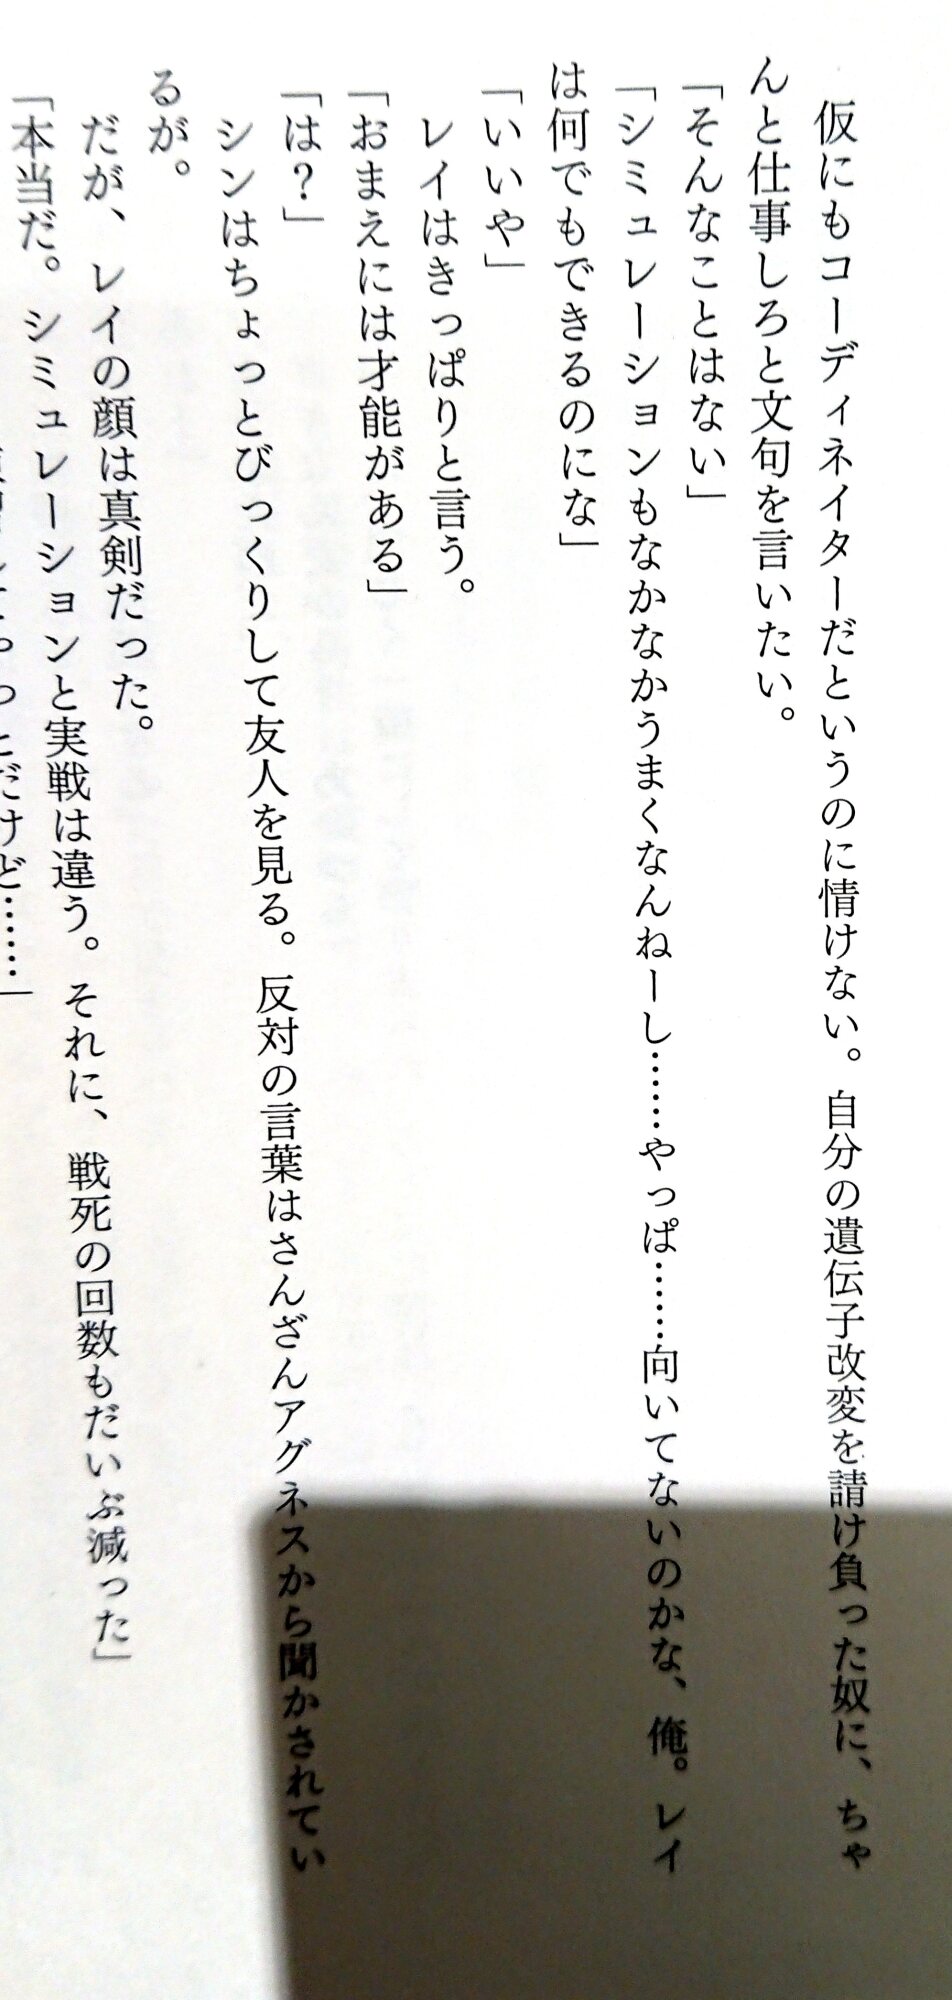 仮にもコーディネイターだというのに情けない。自分の遺伝子改変を請け負った奴に、ちゃ
んと仕事しろと文句を言いたい。
「そんなことはない」
「シミュレーションもなかなかうまくなんねーし……やっぱ……向いてないのかな、俺。レイ
は何でもできるのにな」
「いいや」
レイはきっぱりと言う。
「おまえには才能がある」
「は？」
シンはちょっとびっくりして友人を見る。反対の言葉はさんざんアグネスから聞かされてい
るが。
だが、レイの顔は真剣だった。
「本当だ。シミュレーションと実戦は違う。それに、戦死の回数もだいぶ減った」
だけど……」